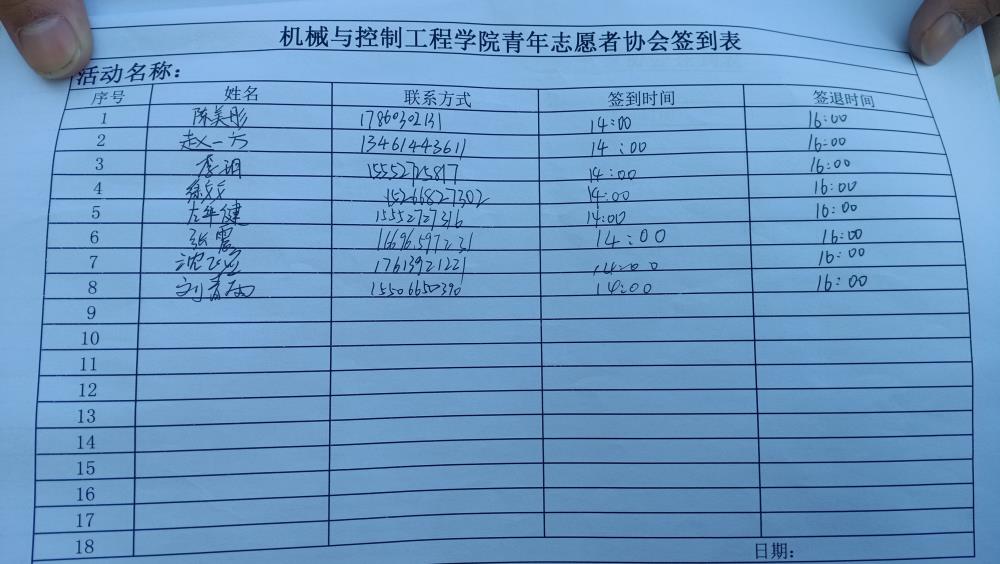 机械与控制工程学院青年志愿者协会签到表
活动名称：
序号 姓名 联系方式 签到时间 签退时间
1 陈美彤 17860302131 14:00 16:00
2 赵一方 13461443611 14:00 16:00
3 李玥 15552725817 14:00 16:00
4 15266827302 14:00 16:00
5 15552727316 14:00 16:00
6 张震 16696597231 14:00 16:00
7 17613921221 14:00 16:00
8 15506650390 14:00 16:00
9
10
11
12
13
14
15
16
17
18
日期：